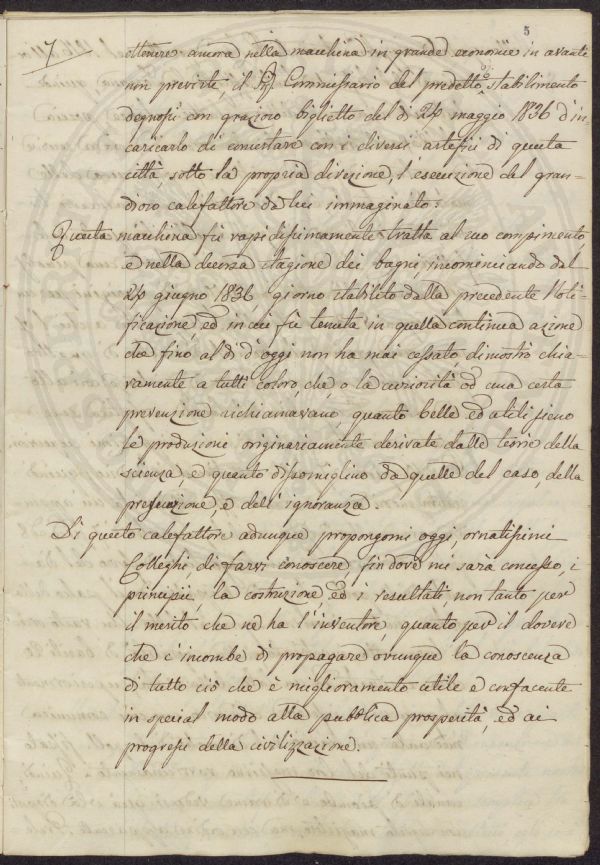 5
7
ottenere ancora nella macchina in grande economie in avanti
non previste, il Sig. Commissario del predetto stabilimento
degnossi con grazioso biglietto del dì 24 maggio 1836 d'in-
caricarlo di concertare con i diversi artefici di questa
città, sotto la propria direzione, l'esecuzione del gran-
dioso calefattore da lui immaginato.
Questa macchina fù rapidissimamente tratta al suo compimento,
e nella decorsa stagione dei bagni incominciando dal
24 giugno 1836, giorno stabilito dalla precedente Noti-
ficazione, ed in cui fù tenuta in quella continua azione
che fino al dì d'oggi non ha mai cessato, dimostrò chia-
ramente a tutti coloro, che, o la curiosità od una certa
prevenzione richiamavano, quanto belle ed utili sieno
le produzioni originariamente derivate dalle teorie della
scienza, e quanto dissomiglino da quelle del caso, della
presunzione, e dell'ignoranza.
Di questo calefattore adunque propongomi oggi, ornatissimi
Colleghi di farvi conoscere fin dove mi sarà concesso, i
principii, la costruzione, ed i resultati, non tanto per
il merito che ne ha l'inventore, quanto per il dovere
che c'incombe di propagare ovunque la conoscenza
di tutto ciò che è miglioramento utile e confacente
in special modo alla pubblica prosperità, ed ai
progressi della civilizzazione.